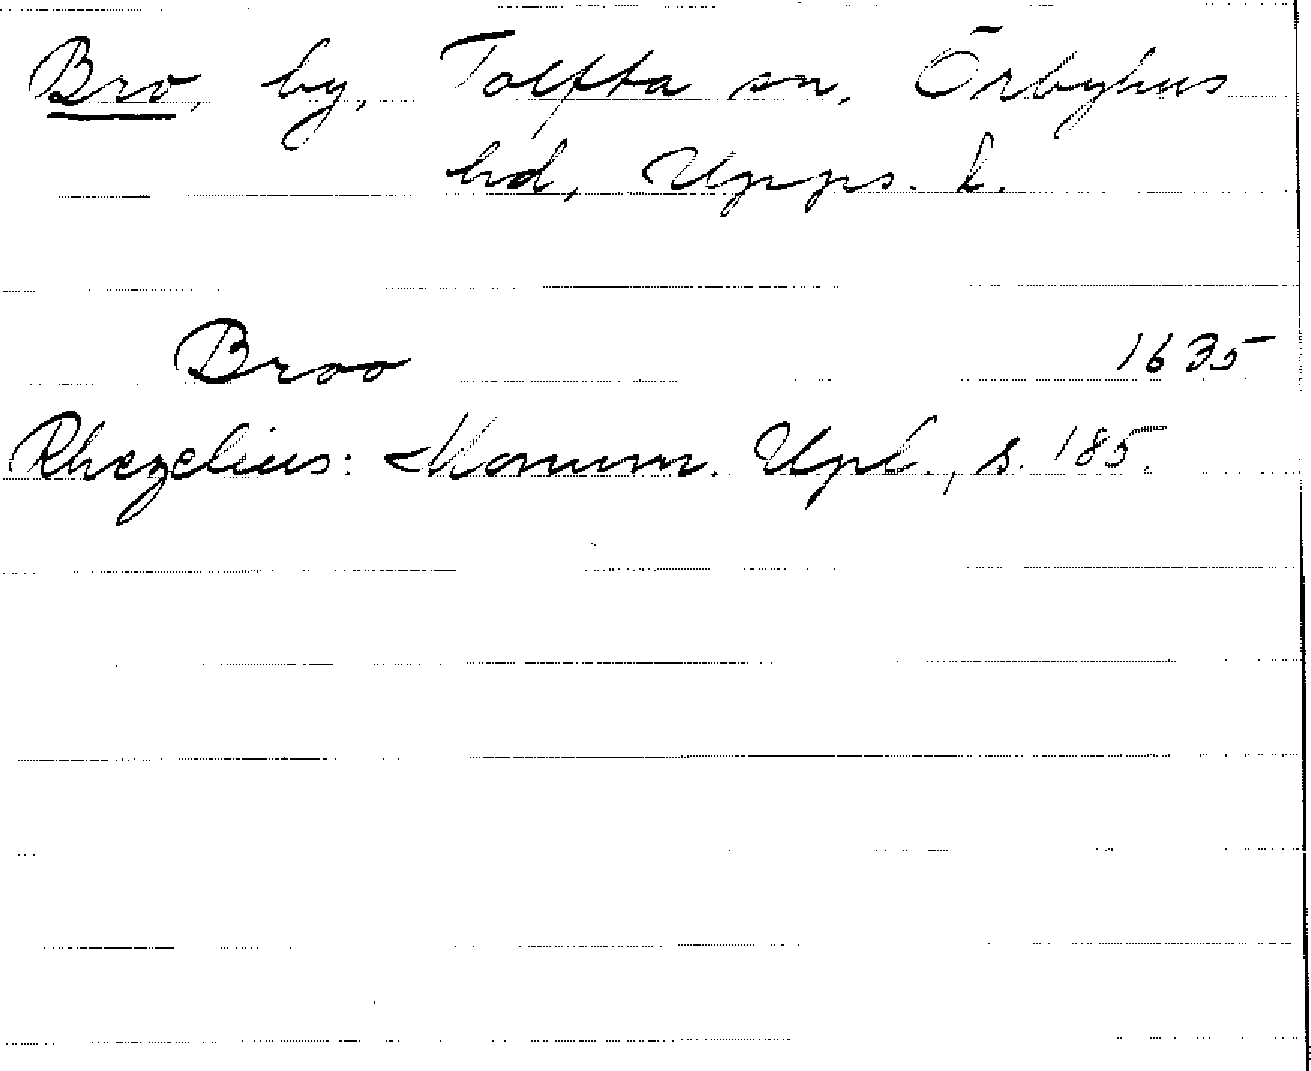 Bro, by, Tolfta sn, Örbyhus
hd, Upps. l.
Broo 1635
Rhezelius: Monum. Upl., s. 185.